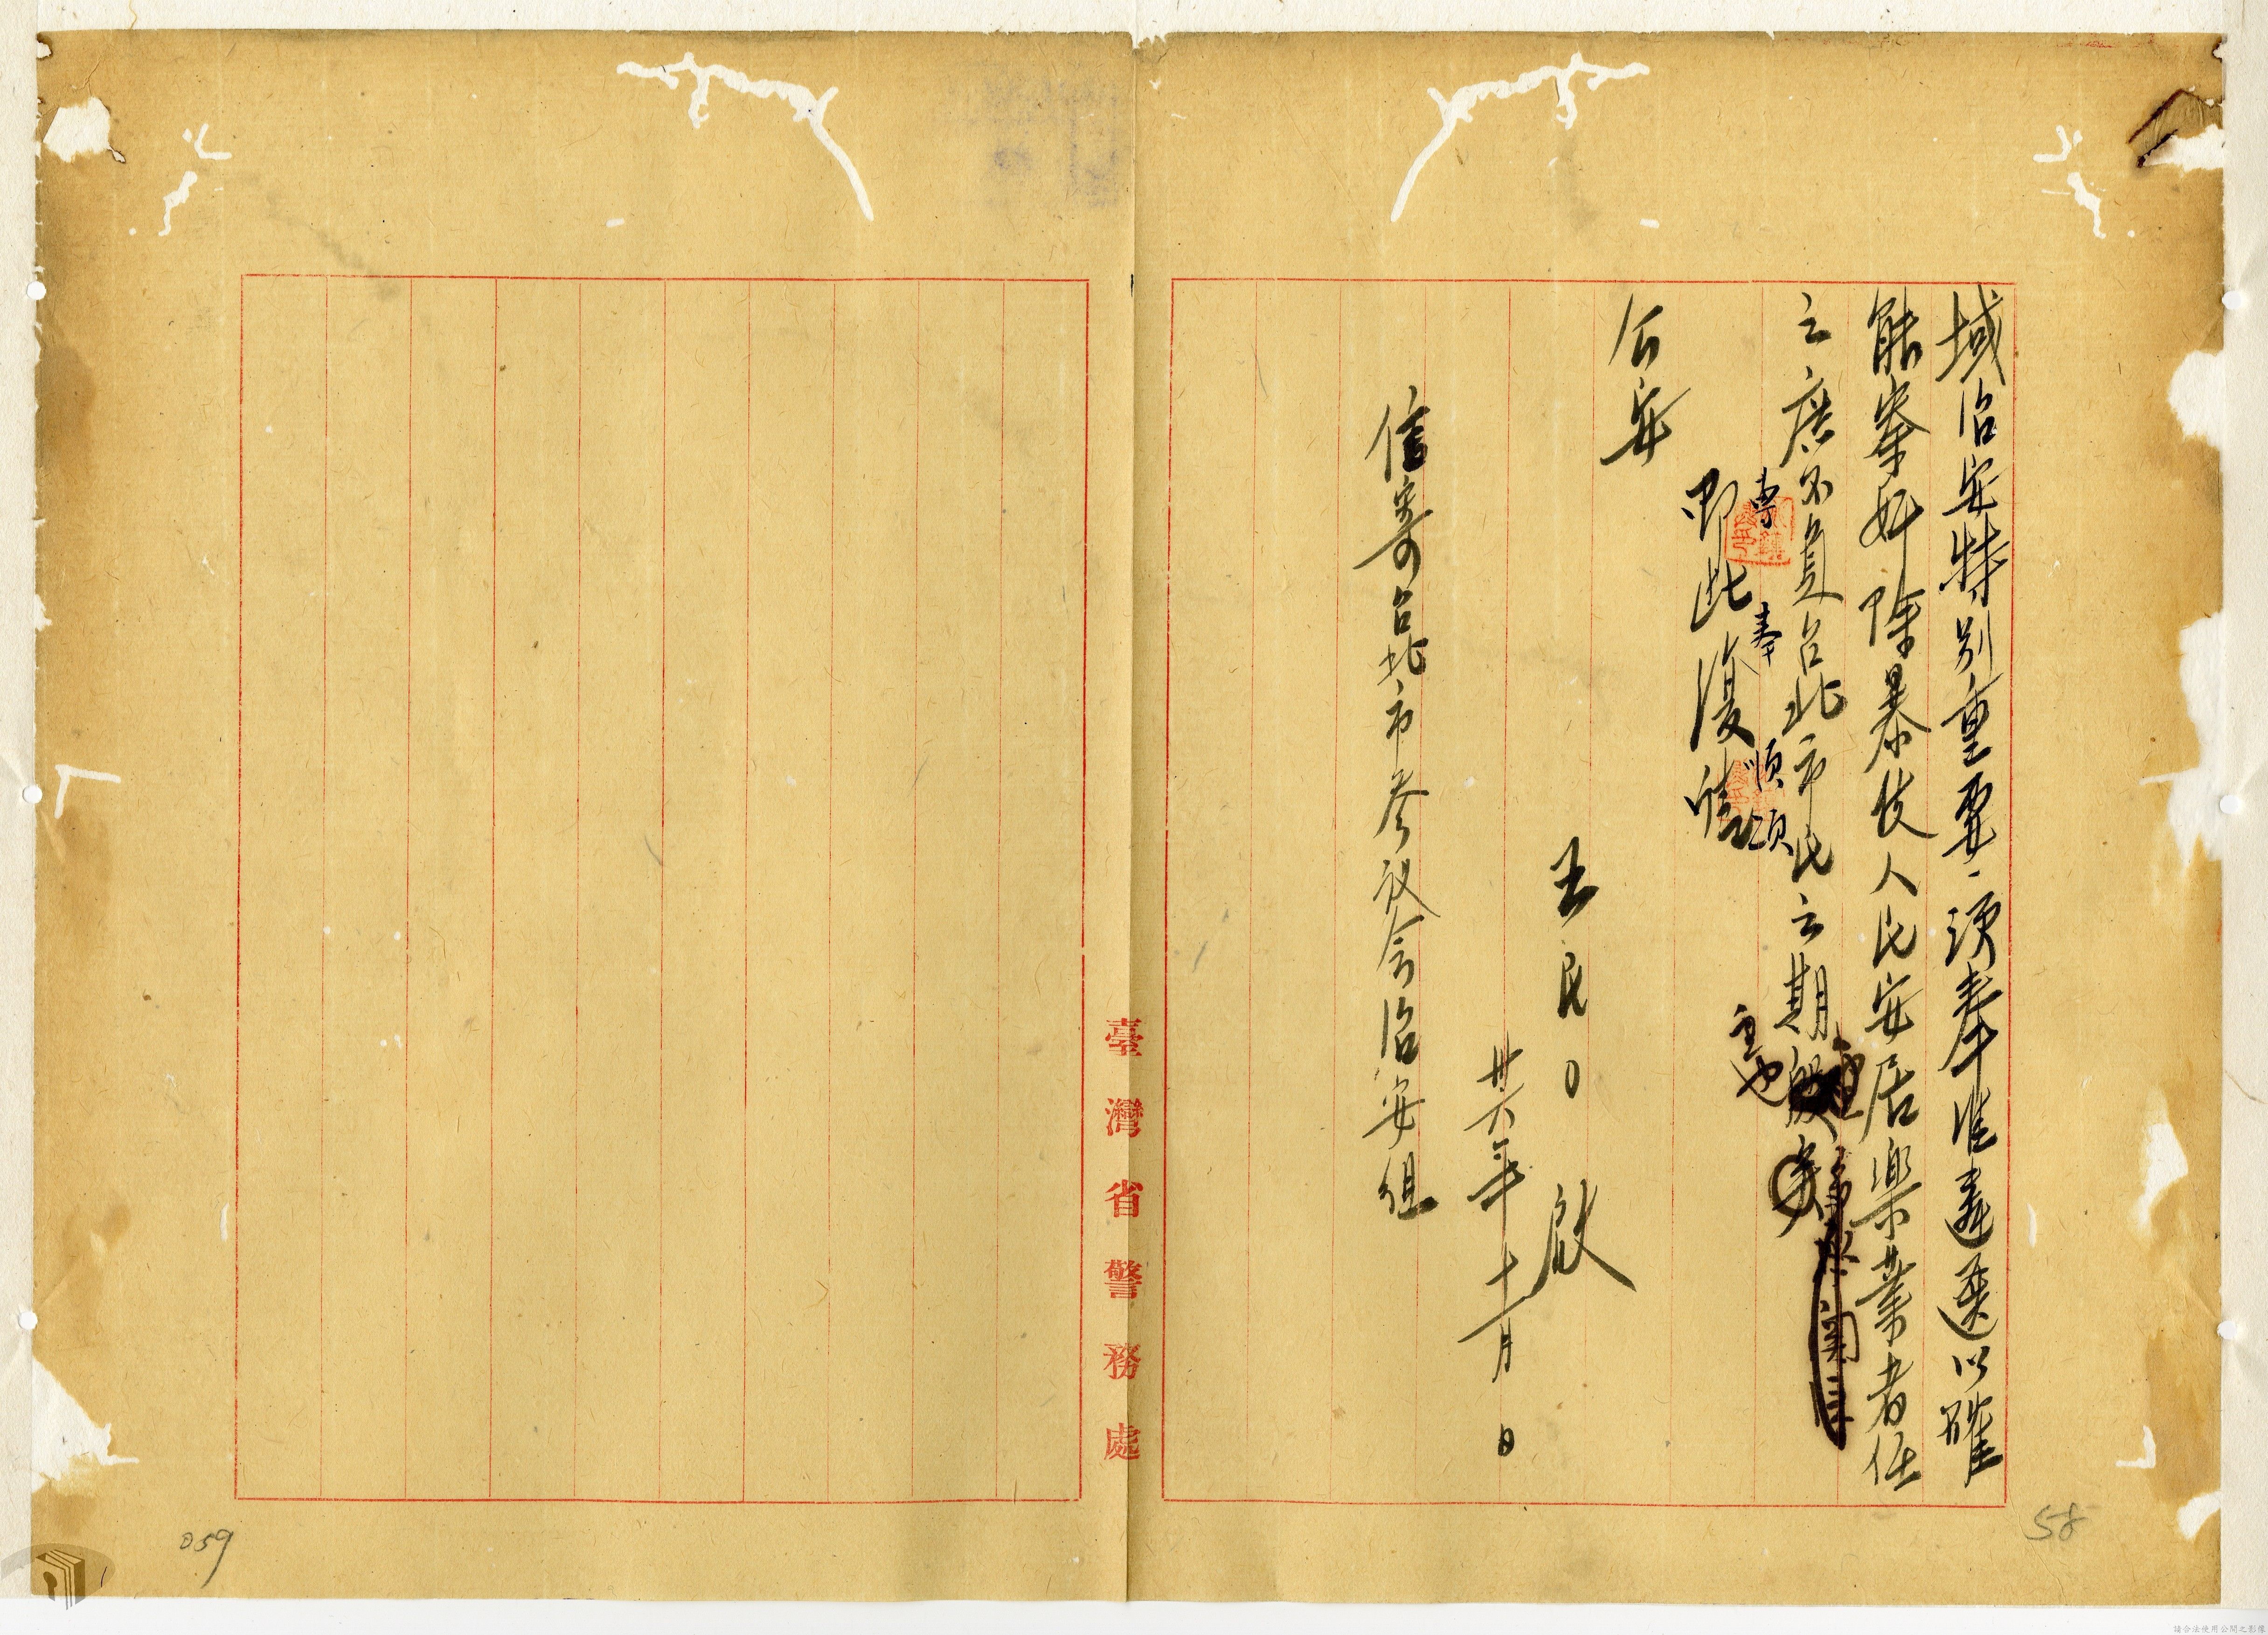 域治安特別重要、須奉准遴選以確
能鋤奸除暴使人民安居樂業者任
之庶不負台北市民之期
重也
專 奉 順頌
即此復
公安
王民〇 啟
卅六年十一月 日
信寄台北市参议会治安组
臺灣省警務處
58
059
請合法使用公開之影像